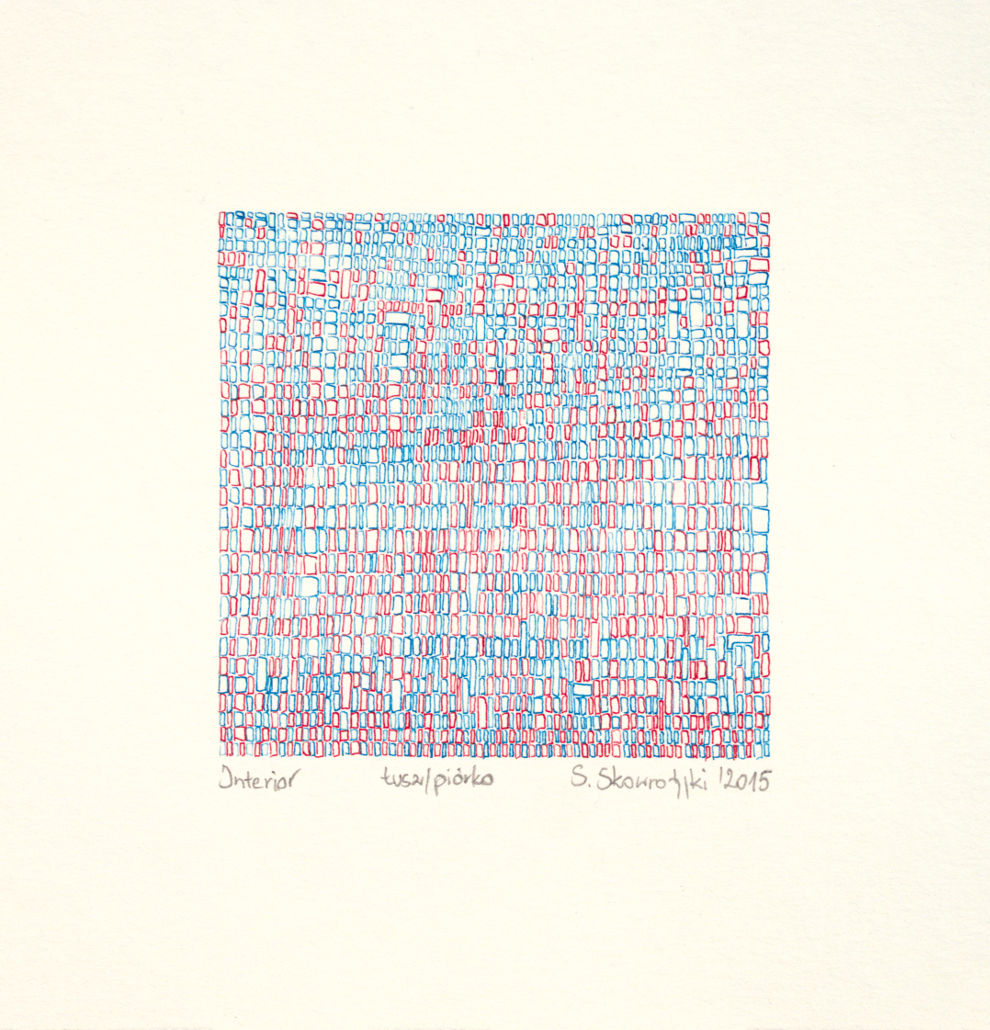 Interior tusz/piórko S. Skowroński '2015